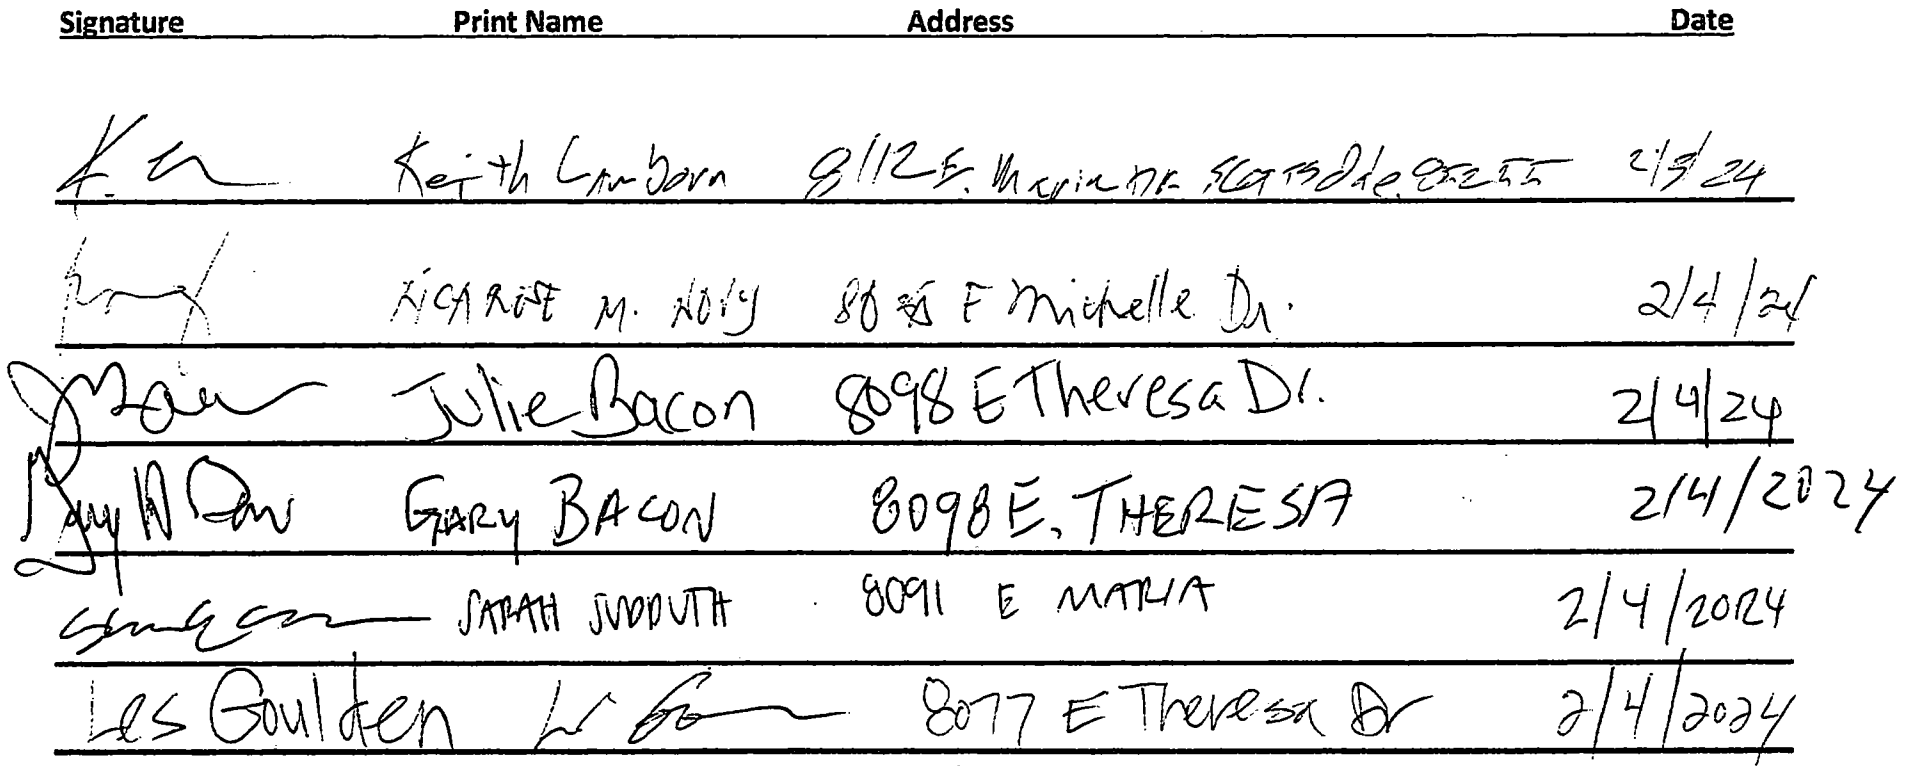 Signature Print Name Address Date
Keith 8112 E. Maria Dr. Scottsdale 85255 2/3/24
M. Novy E Michelle Dr. 2/4/24
Julie Bacon 8098 E Theresa Dr. 2/4/24
GARY BACON 8098 E. THERESA 2/4/2024
SARAH SUDDUTH 8091 E MARIA 2/4/2024
Les Goulden 8077 E Theresa Dr 2/4/2024